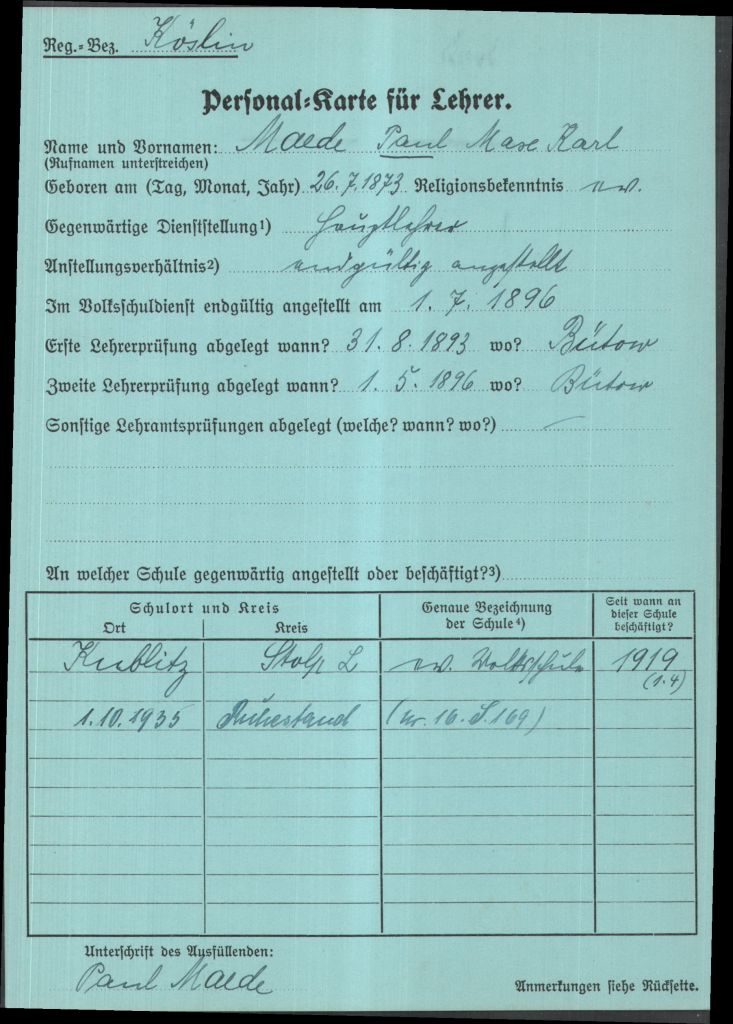 Reg.-Bez. Köslin
Personal-Karte für Lehrer.
Name und Vornamen: Maede Paul Maxe Karl
(Rufnamen unterstreichen)
Geboren am (Tag, Monat, Jahr) 26.7.1873 Religionsbekenntnis ev.
Gegenwärtige Dienststellung1) Hauptlehrer
Anstellungsverhältnis2) endgültig angestellt
Im Volksschuldienst endgültig angestellt am 1. 7. 1896
Erste Lehrerprüfung abgelegt wann? 31. 8. 1893 wo? Bütow
Zweite Lehrerprüfung abgelegt wann? 1. 5. 1896 wo? Bütow
Sonstige Lehramtsprüfungen abgelegt (welche? wann? wo?) —
An welcher Schule gegenwärtig angestellt oder beschäftigt?3)
Schulort und Kreis
Ort Kreis
Genaue Bezeichnung
der Schule4)
Seit wann an
dieser Schule
beschäftigt?
Kublitz Stolp L ev. Volksschule 1919
(1.4)
1.10.1935 Ruhestand (nr. 16. S. 169)
Unterschrift des Ausfüllenden:
Paul Maede
Anmerkungen siehe Rückseite.